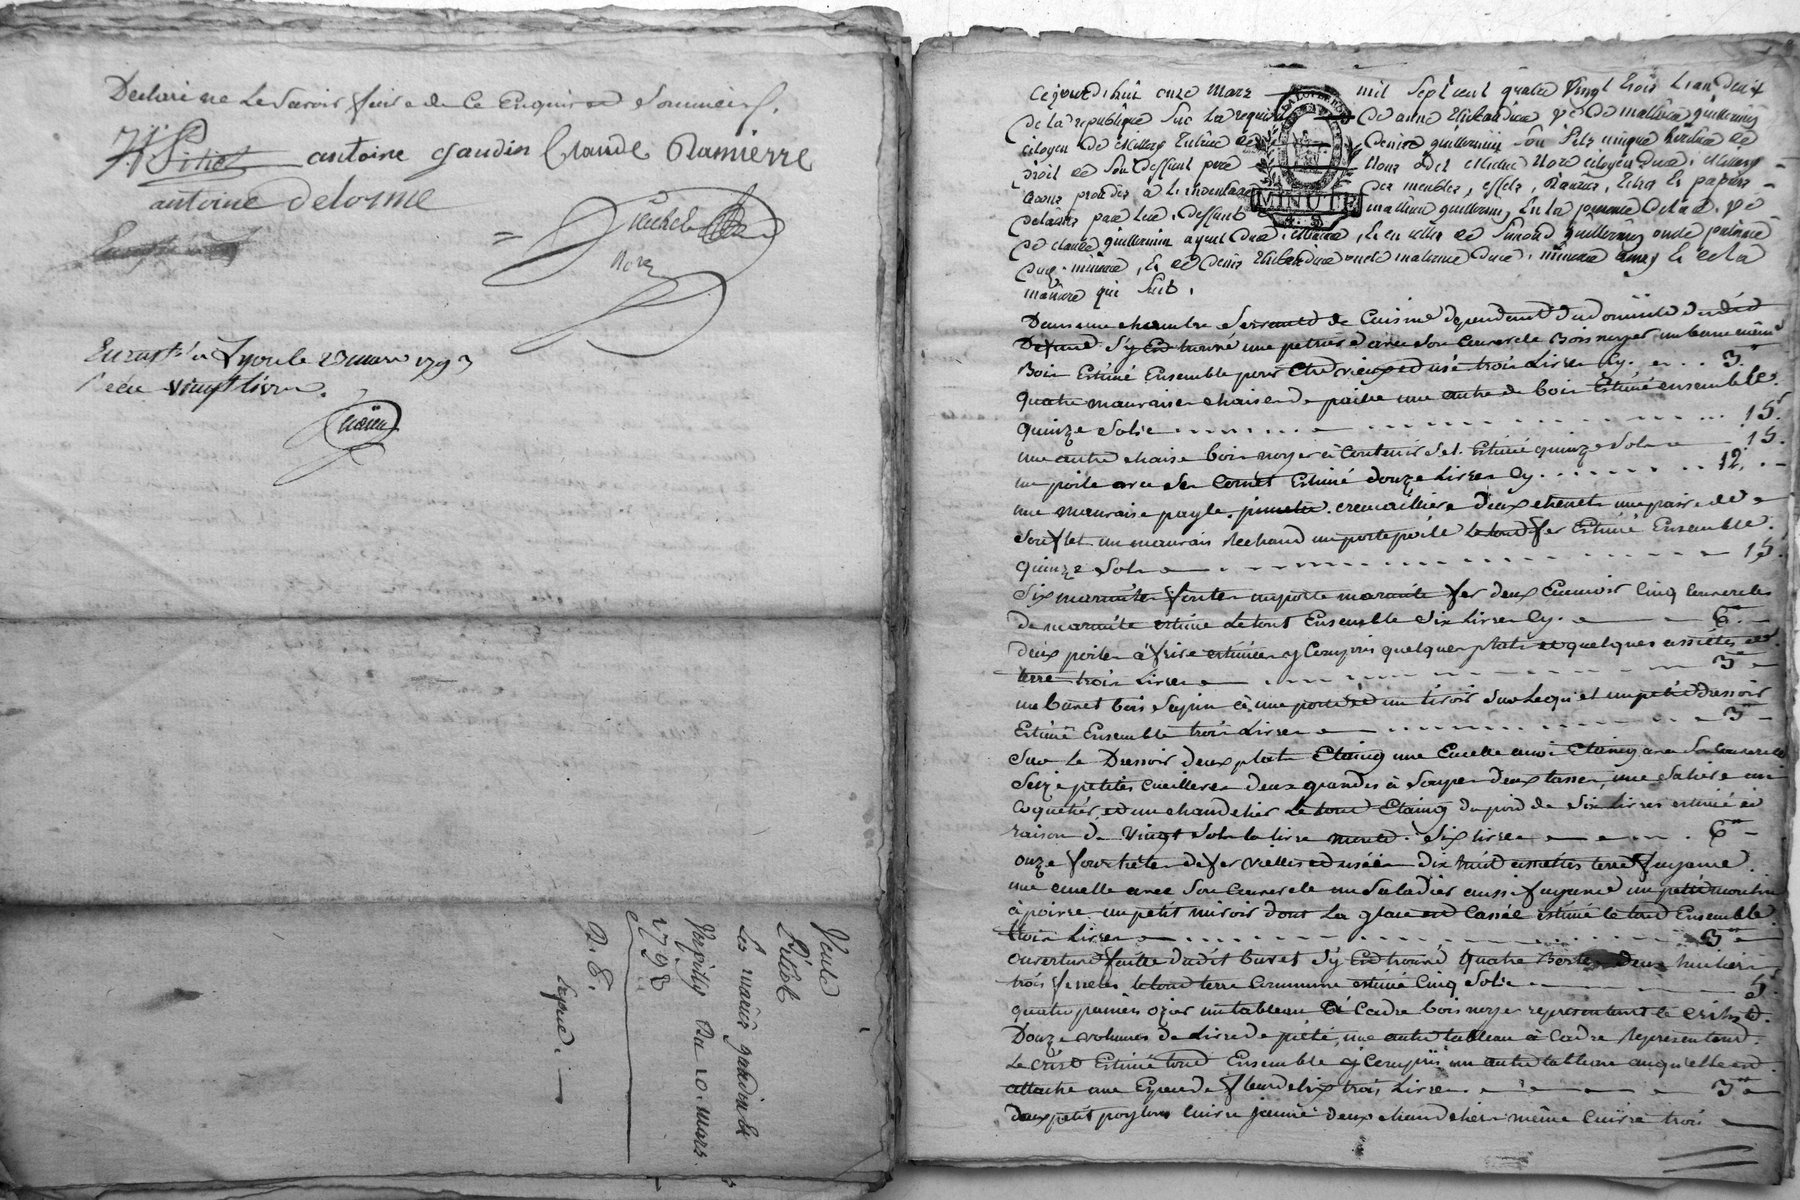 Declaré ne le savoir faire de ce Enquis et Sommés /.
Pitiot antoine gaudin Claude Ramierre
antoine delorme
Enregt à Lyon le 23 mars 1793
Reçu vingt livres.
Vente
Pitiot
Les mariés gaudin &
Verpilly Du 10. Mars
1793
2. E.
Expéd. —
Cejourd'huit onze Mars mil Sept cent quatre Vingt trois L'an deux
de la republique Sur la requis de anne ve de mathieu guillermin
citoyen de Millery Son fils unique heritier de
droit de Son deffunt pere Nous dit Michel Nore citoyen dud. Millery
avons procédés à L'inventaire des meubles, effets, titres & papiers
delaissés par led. deffunt mathieu guillermin, En la presence de lad. ve
de claude guillermin ayeul dud. mineur, & en celle de guillermin oncle paternel
dud. mineur, & de Denis oncle maternel dud. mineur & de la
maniere qui Suit.
Dans une chambre Servant de Cuisine dependant du domicile dudit
Defunt S'y Est trouvé une petriere avec Son Couvercle Bois noyer un banc même
Bois Estimé Ensemble pour Etre vieux et usé trois Livres Cy. 3.
quatre mauvaises chaises de paille une autre de bois Estimé ensemble
quinze Sols 15.
une autre chaise bois noyer à Contenir Sel. Estimé quinze Sols 15.
un poile avec Ses Cornet Estimé douze Livres Cy. 12.
une mauvaise payle cremailliere deux chenets une paire de
Souflet un mauvais Rechaud un porte poile le tout fer Estimé Ensemble
quinze Sols 15.
Six marmites fontes un porte marmite fer deux Ecumoir Cinq Couvercles
de marmite estimé le tout Ensemble Six Livres Cy. 6.
deux poiles à frire estimées y Compris quelques plats et quelques assiétes de
terre trois Livres 3
un buffet bois Sapin à une porte et un tiroir Sur Lequel et un petit dressoir
Estimé Ensemble trois Livres 3
Sur le Dressoir deux plats Etaing une Ecuelle aussi Etaing avec Son Couvercle
Seize petites Cueilleres deux grandes à Souper deux tasses, une Saliere un
Coquetier, et un chandelier le tout Etaing du poid de Six Livres estimé à
raison de Vingt Sols la livre monte. Six livres 6
onze fourchétes de fer vielles et usées dix huit assiétes terre fayance
une ecuelle avec Son Couvercle un Saladier aussi fayance un petit moulin
à poivre un petit miroir dont La glace est Cassée estimé le tout Ensemble
trois Livres 3
ouverture faitte dudit buffet S'y Est trouvé quatre deux huilier
trois le tout terre Commune estimé Cinq Sols 5
quatre paniers ozier un tableau à Cadre bois noyer representant le Crihst.
Douze volumes de Livre de piété, une autre tableau à Cadre Representent
Le Crist Estimé tout Ensemble y Compris un autre tableau auquelle est
attaché une Espece de fleur de lix trois Livres 3
deux petit poylons Cuivre jaune deux chandeliers même Cuivre trois